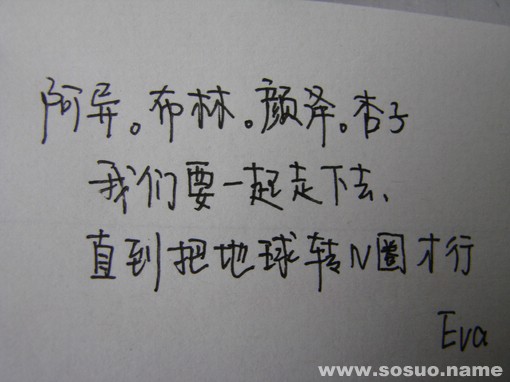 阿异。布林。颜泽。杏子
我们要一起走下去、
直到把地球转N圈才行
Eva
www.sosuo.name